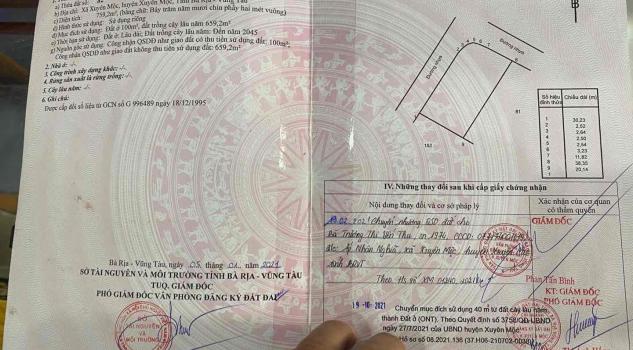 b) Địa chỉ: Xã Xuyên Mộc, huyện Xuyên Mộc, Tỉnh Bà Rịa - Vũng Tàu
c) Diện tích: 759,2m², (bằng chữ: Bảy trăm năm mươi chín phẩy hai mét vuông)
d) Hình thức sử dụng: Sử dụng riêng
đ) Mục đích sử dụng: Đất ở 100m², đất trồng cây lâu năm 659,2m²
e) Thời hạn sử dụng: Đất ở: Lâu dài; Đất trồng cây lâu năm: Đến năm 2045
g) Nguồn gốc sử dụng: Công nhận QSDĐ như giao đất có thu tiền sử dụng đất: 100m²;
Công nhận QSDĐ như giao đất không thu tiền sử dụng đất: 659,2m²
2. Nhà ở: -/-
3. Công trình xây dựng khác: -/-
4. Rừng sản xuất là rừng trồng: -/-
5. Cây lâu năm: -/-
6. Ghi chú:
Được cấp đổi số liệu từ GCN số G 996489 ngày 18/12/1995
Bà Rịa - Vũng Tàu, ngày 05 tháng 01 năm 2021
SỞ TÀI NGUYÊN VÀ MÔI TRƯỜNG TỈNH BÀ RỊA - VŨNG TÀU
TUQ. GIÁM ĐỐC
PHÓ GIÁM ĐỐC VĂN PHÒNG ĐĂNG KÝ ĐẤT ĐAI
SỞ
TÀI NGUYÊN
VÀ
MÔI TRƯỜNG
B
Đường nhựa
Đường nhựa
81
Số hiệu đỉnh thửa
Chiều dài (m)
1
30,23
2
2,52
3
2,64
4
2,50
5
2,54
6
3,23
7
11,82
8
38,35
9
20,14
1
IV. Những thay đổi sau khi cấp giấy chứng nhận
Nội dung thay đổi và cơ sở pháp lý
Xác nhận của cơ quan
có thẩm quyền
Chuyển nhượng QSD đất cho
GIÁM ĐỐC
Bà Trương Thị Yến Thu, sn 1974, CCCD:
đ/c: Ấp Nhân Nghĩa, xã Xuyên Mộc, huyện Xuyên Mộc
tỉnh BRVT
Theo Hs số
Phan Tấn Bình
KT. GIÁM ĐỐC
PHÓ GIÁM ĐỐC
19-10-2021
Chuyển mục đích sử dụng 40 m² từ đất cây lâu năm
thành Đất ở (ONT). Theo Quyết định số 3758/QĐ-UBND
ngày 27/7/2021 của UBND huyện Xuyên Mộc.